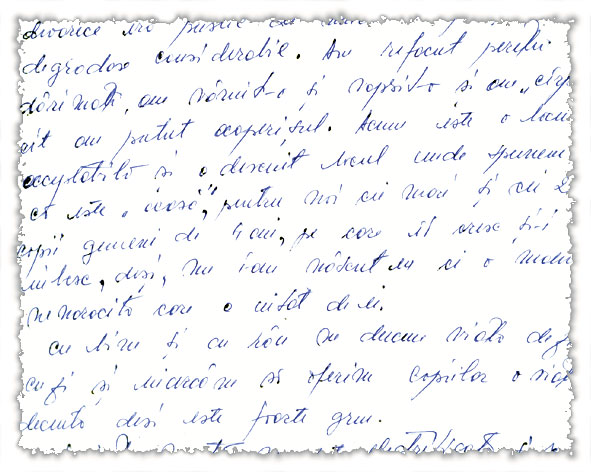 degradase considerabil. Am refăcut pereții
dărîmați, am văruit-o și vopsit-o și am „cîrp
cît am putut acoperișul. Acum este o
acceptabilă și a devenit locul unde spunem
că este „acasă”, pentru noi cei mari și cei 2
copii gemeni de 4 ani, pe care îi cresc și-i
iubesc, deși, nu i-am născut eu ci o
nenorocită care a uitat de ei.
cu bine și cu rău ne ducem viața
și încercăm să oferim copiilor o viaț
decentă deși este foarte greu.